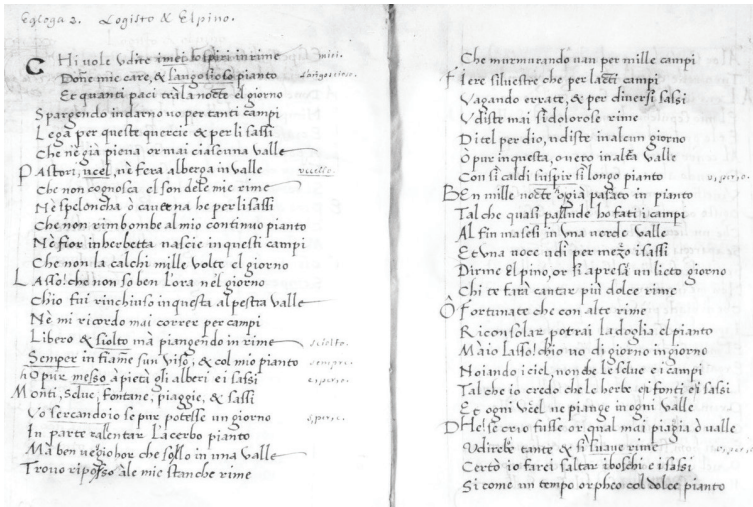 Egloga 2. Logisto & Elpino.
CHi vole Vdire imei sospiri in rime miei.
Donne mie care, & l'angostioso pianto l'angoscioso
Et quanti paci trà la notte el giorno
Spargendo indarno vo per tanti campi
Lega per queste quercie & per li sassi
Che n'è già piena or mai ciascuna valle
PAstori, ucel, nè fera alberga in valle uccello.
Che non cognosca el son dele mie rime
Nè speloncha ò caverna ha per li sassi
Che non rimbombe al mio continuo pianto
Nè fior in herbetta nascie in questi campi
Che non la calchi mille volte el giorno
LAsso! che non so ben l'ora nel giorno
Chio fui rinchiuso in questa alpestra valle
Nè mi ricordo mai correr per campi
Libero & siolto mà piangendo in rime sciolto.
Semper in fiame sun viso, & col mio pianto sempre.
hOpur messo à pietà gli alberi e i sassi
Monti, Selve, fontane, piaggie, & sassi
Vo sercando io se pur potesse un giorno
In parte ralentar l'acerbo pianto
Mà ben vegio hor che sollo in una valle
Trovo riposso ale mie stanche rime
Che murmurando van per mille campi
FIere silvestre che per lacti campi
Vagando errate, & per diversi sassi
Vdiste mai sì dolorose rime
Ditel per dio, udiste in alcun giorno
Ò pur in questa, o vero in altra valle
Con sì caldi suspir sì longo pianto
BEn mille notte ogià pasato in pianto
Tal che quasi pallude ho fati i campi
Al fin masesi in una verde valle
Et Vna voce udi per mezo i sassi
Dirme Elpino, or si apresa un lieto giorno
Chi te farà cantar più dolce rime
Ô Fortunate che con alte rime
Riconsolar potrai la doglia el pianto
Mà io lasso! chio vo di giorno in giorno
Noiando i ciel, non che le selve e i campi
Tal che io credo che le herbe e i fonti e i sassi
Et ogni Vcel ne piange in ogni Valle
DHe! se
Vdirebe tante & sì suave rime
Certò io farei saltar i boschi e i sassi
Si come un tempo orpheo col dolce pianto